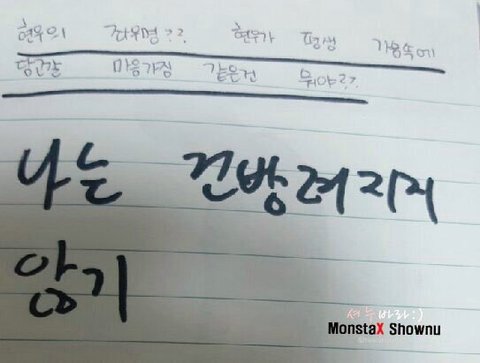 현우의 좌우명?? 현우가 평생 가슴속에
담고갈 마음가짐 같은건 뭐야??
나는 건방려지지
않기
셔누바라:)
MonstaX Shownu